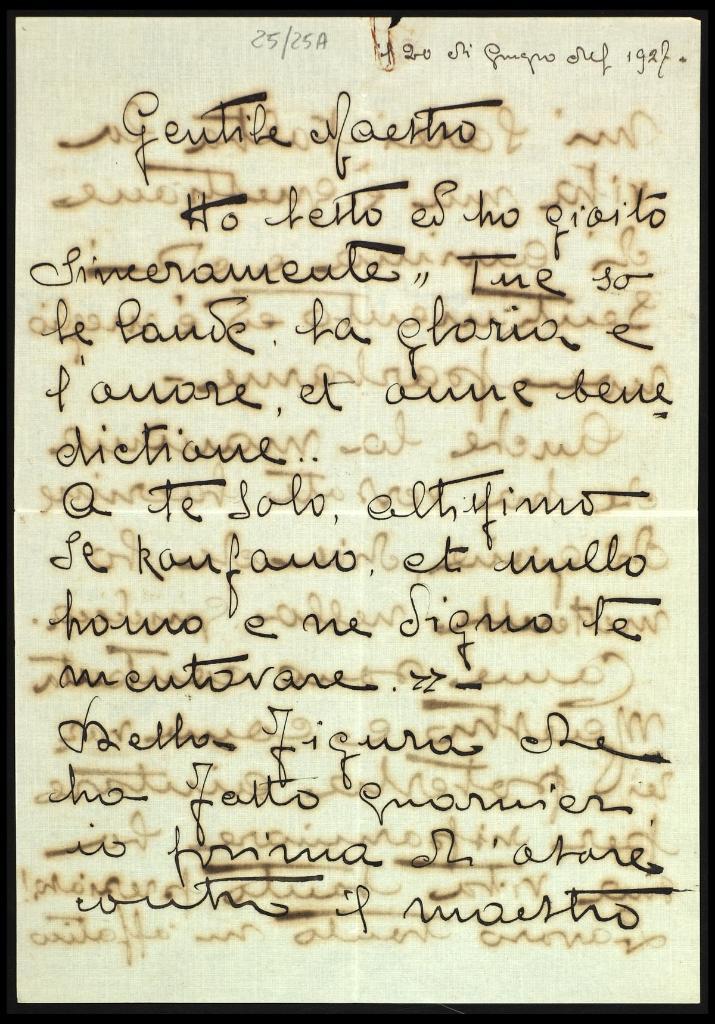 25/25A
il 20 di Giugno del 1927.
Gentile Maestro
Ho letto ed ho gioito
Sinceramente „ Tue so
le laude, la gloria e
l'onore, et onne bene
dictione..
A te solo, altissimo
se konfano, et nullo
homo e ne digno te
mentovare. » –
Bella figura che
ha fatto Guarnier
io prima di osare
contro il maestro